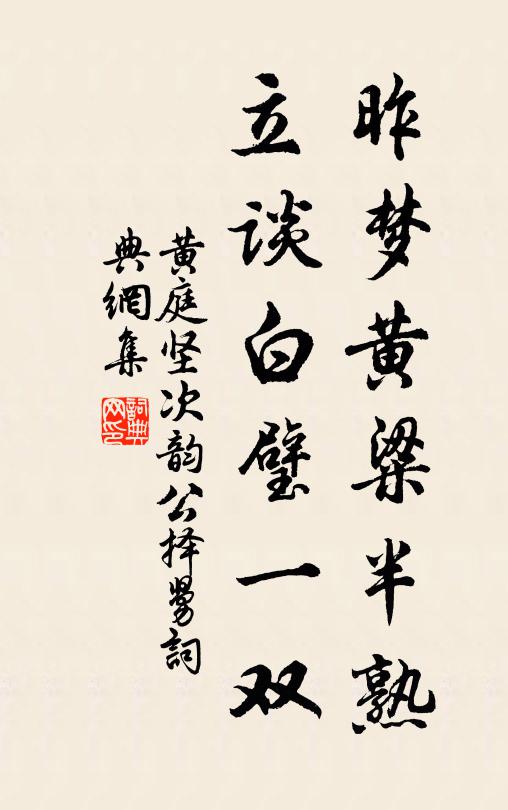 昨梦黄粱半熟
立谈白璧一双
黄庭坚次韵公择舅詞
典網集
詞典网印